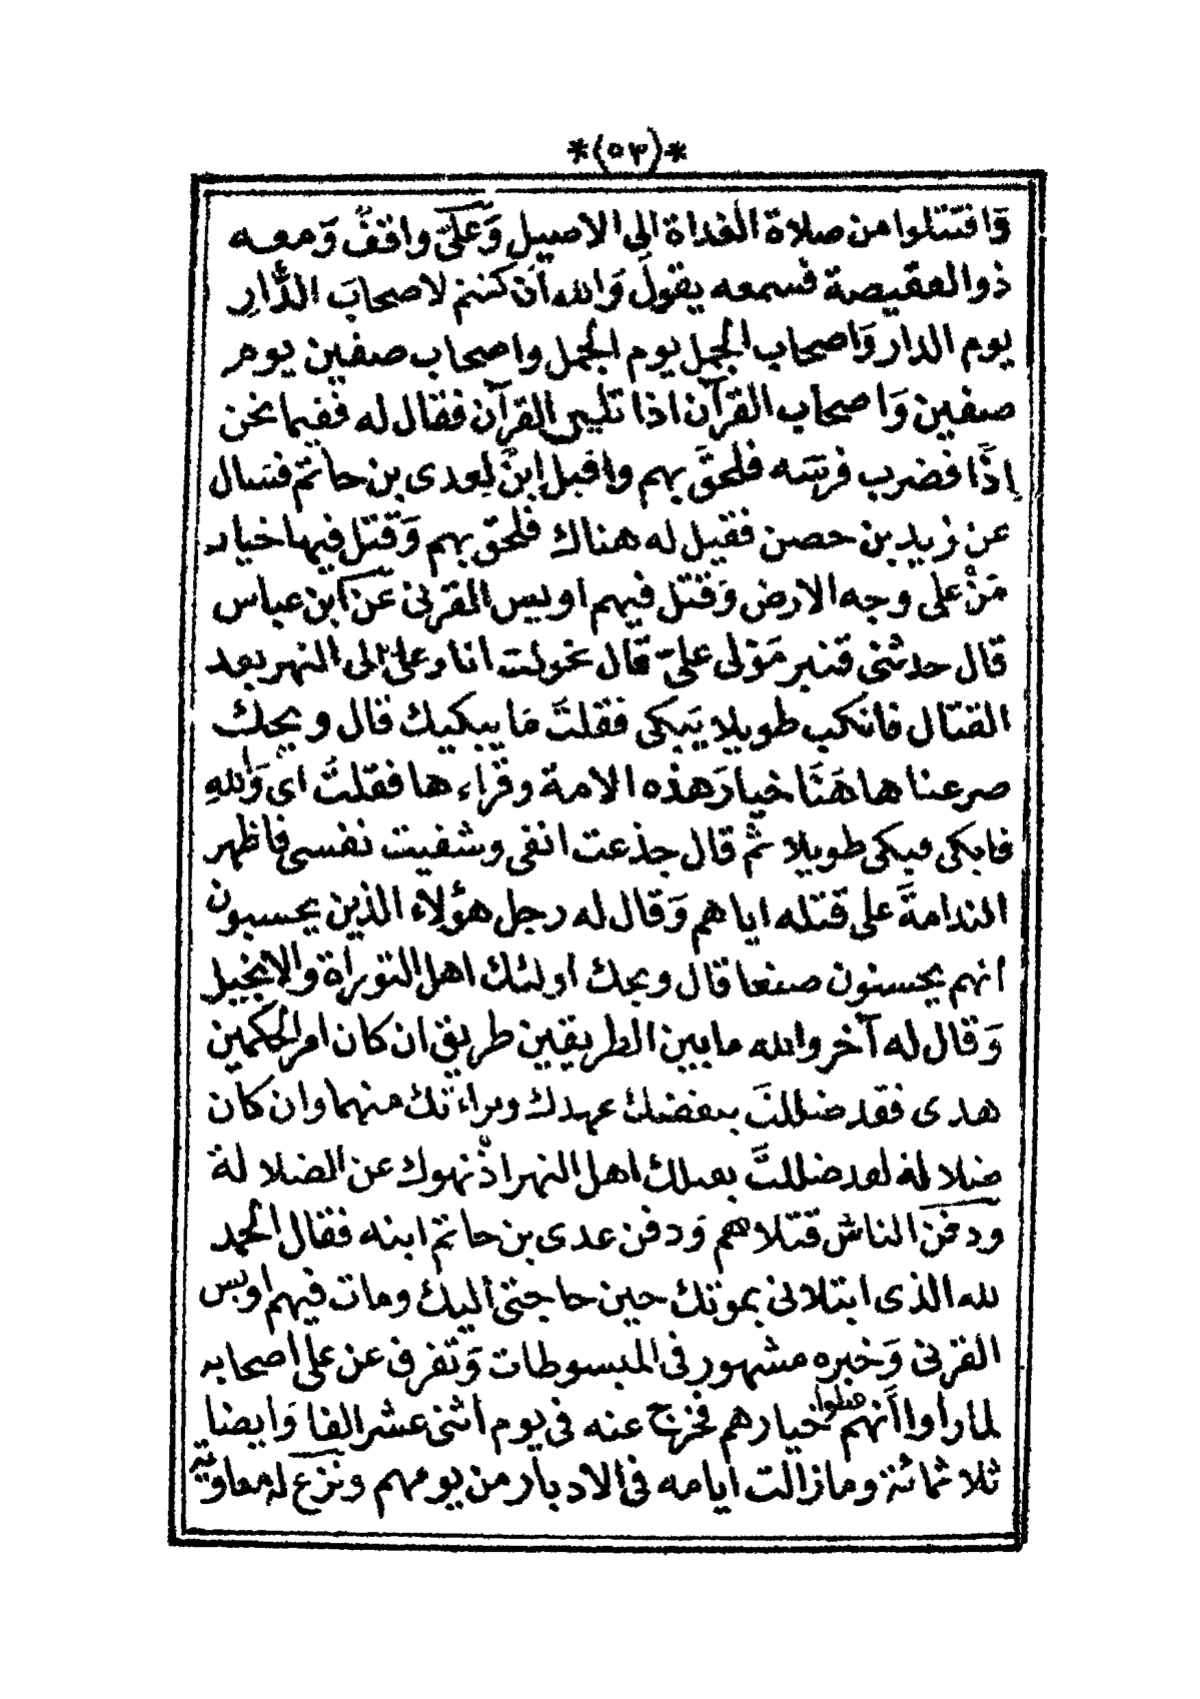 *(٥٣)*
وَاقتتلوا من صلاة الغداة الى الاصيل وَعلىّ واقفٌ وَمعه
ذو العقيصة فسمعه يقول وَالله أن كنتم لاصحابَ الدَّارِ
يوم الدار وَاصحاب الجمل يوم الجمل واصحاب صفين يوم
صفين وَاصحاب القرآن اذا تلي القرآن فقال له ففيما نحن
إذًا فضرب فرسه فلحقَ بهم واقبل ابنٌ لعدى بن حاتم فسال
عن زيد بن حصن فقيل له هناك فلحق بهم وَقتل فيها خيار
مَنْ على وجه الارض وَقتل فيهم اويس القرنى عن ابن عباس
قال حدثنى قنبر مَوْلى علىّ قال تحولت انا وعلىّ الى النهر بعد
القتال فانكب طويلا يَبكى فقلتَ مَا يبكيك قال ويحك
صرعنا هاهَنَا خيارَ هذه الامة وقراءها فقلتُ اى وَاللهِ
فابكى فبكى طويلا ثم قال جذعت انفى وشفيت نفسى فاظهر
الندامةَ على قتله اياهم وَقال له رجل هؤلاء الذين يحسبون
انهم يحسنون صنعا قال ويحك أولئك اهل التوراة والانجيل
وَقال له آخر والله ما بين الطريقين طريق ان كان امر الحكمين
هدى فقد ضللتَ بنقضك عهدك وبراءتك منهما وان كان
ضلالة لقد ضللتَ بقتلك اهل النهر اذْ نهوك عن الضلالة
ودفن الناس قتلاهم وَدفن عدى بن حاتم ابنه فقال الحمد
لله الذى ابتلانى بموتك حين حاجتى أليك ومات فيهم اويس
القرنى وَخبره مشهور فى المبسوطات وَتفرق عن على أصحابه
لما رأوا أنهم قتلوا خيارهم فخرج عنه فى يوم أثنى عشر الفا وَايضا
ثلاثمائة وما زالت ايامه فى الادبار من يومهم ونزع له معاوية